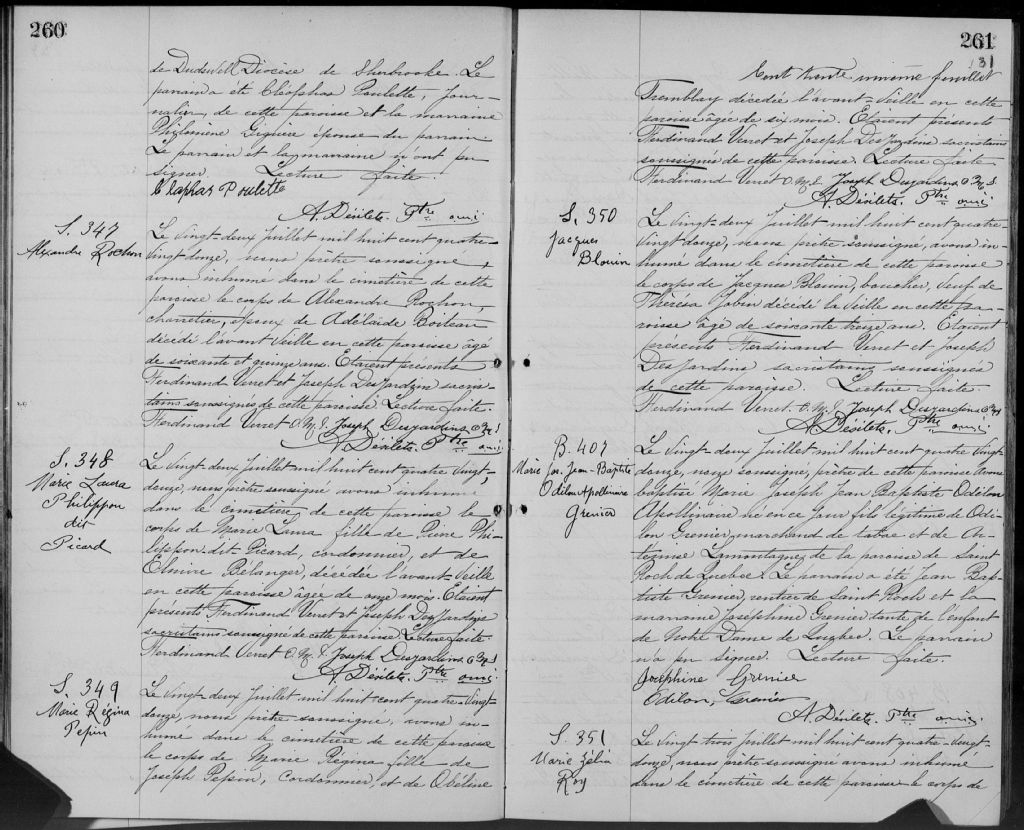 260
de Dudswell Diocèse de Sherbrooke. Le
parrain a été Cléophas Poulette, Jour-
nalier, de cette paroisse et la marraine
Philomène Giguère épouse du parrain.
Le parrain et la marraine n'ont pu
signer. Lecture faite.
Clephas Poulette
A. Désilets. Ptre omi
S. 347
Alexandre Rochon
Le Vingt-deux Juillet mil huit cent quatre-
vingt douze, nous prêtre soussigné,
avons inhumé dans le cimetière de cette
paroisse le corps de Alexandre Rochon,
charretier, époux de Adélaïde Boiteau
décédé l'avant Veille en cette paroisse âgé
de soixante et quinze ans. Etaient présents
Ferdinand Verret et Joseph Desjardins sacris-
tains soussignés de cette paroisse. Lecture faite.
Ferdinand Verret O.M.I. Joseph Desjardins O M I
A. Désilets. Ptre omi
S. 348
Marie Laura
Philippon
dit
Picard
Le Vingt-deux Juillet mil huit cent quatre Vingt-
douze, nous prêtre soussigné avons inhumé
dans le cimetière de cette paroisse le
corps de Marie Laura fille de Pierre Phi-
lippon dit Picard, cordonnier, et de
Elmire Bélanger, décédée l'avant-Veille
en cette paroisse âgée de onze mois. Etaient
présents Ferdinand Verret et Joseph Desjardins
sacristains soussigné de cette paroisse Lecture faite.
Ferdinand Verret O.M.I. Joseph Desjardins O M I
A. Désilets. Ptre omi
S. 349
Marie Régina
Pepin
Le Vingt-deux Juillet mil huit cent quatre-Vingt-
douze, nous prêtre soussigné, avons in-
humé dans le cimetière de cette paroisse
le corps de Marie Régina fille de
Joseph Pepin, Cordonnier, et de Obéline
261
131
Cent trente unième feuillet
Tremblay décédée l'avant-Veille en cette
paroisse âgée de six mois. Etaient présents
Ferdinand Verret et Joseph Desjardins sacristains
soussignés de cette paroisse. Lecture faite
Ferdinand Verret O.M.I. Joseph Desjardins O M I.
A. Désilets. Ptre omi
S. 350
Jacques
Blouin
Le Vingt-deux Juillet mil huit cent quatre-
Vingt-douze, nous prêtre soussigné, avons in-
humé dans le cimetière de cette paroisse
le corps de Jacques Blouin, boucher, Veuf de
Thérèsa Jobin décédé la Veille en cette pa-
roisse âgé de soixante treize ans. Etaient
présents Ferdinand Verret et Joseph
Desjardins sacristains soussignés
de cette paroisse. Lecture faite.
Ferdinand Verret. O.M.I. Joseph Desjardins O M I
A. Désilets. Ptre omi
B. 407
Marie Jos. Jean-Baptiste
Odilon Apollinaire
Grenier
Le Vingt-deux Juillet mil huit cent quatre Vingt-
douze, nous soussigné, prêtre de cette paroisse avons
baptisé Marie Joseph Jean Baptiste Odilon
Apollinaire né en ce jour fils légitime de Odi-
lon Grenier, marchand de tabac et de Ar-
témise Lamontagne, de la paroisse de Saint
Roch de Québec. Le parrain a été Jean Bap-
tiste Grenier, rentier de Saint Roch et la
marraine Joséphine Grenier tante de l'enfant
de Notre Dame de Québec. Le parrain
n'a pu signer. Lecture faite.
Joséphine Grenier
Odilon Grenier
A. Désilets. Ptre omi.
S. 351
Marie Zélia
Roy
Le Vingt trois Juillet mil huit cent quatre-vingt-
douze, nous prêtre soussigné avons inhumé
dans le cimetière de cette paroisse le corps de